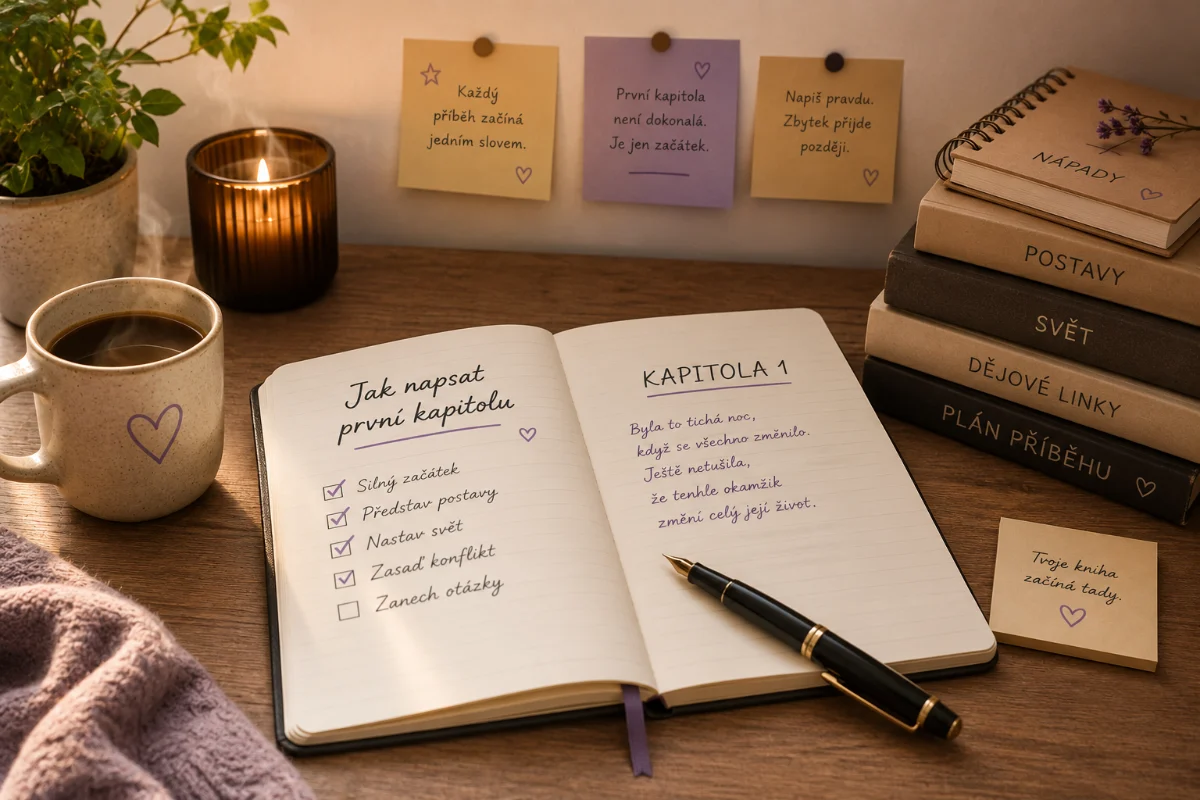 Každý
příběh začíná
jedním slovem.
První kapitola
není dokonalá.
Je jen začátek.
Napiš pravdu.
Zbytek přijde
později.
NÁPADY
POSTAVY
SVĚT
DĚJOVÉ LINKY
PLÁN PŘÍBĚHU
Jak napsat
první kapitolu
Silný začátek
Představ postavy
Nastav svět
Zasaď konflikt
Zanech otázky
KAPITOLA 1
Byla to tichá noc,
když se všechno změnilo.
Ještě netušila,
že tenhle okamžik
změní celý její život.
Tvoje kniha
začíná tady.